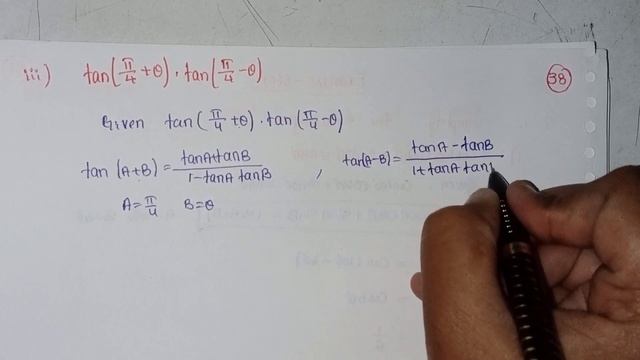 iii) tan(π/4 + θ) · tan(π/4 − θ)
38
Given tan(π/4 + θ) · tan(π/4 − θ)
tan (A+B) = tanA+tanB / 1−tanA tanB , tan(A−B) = tanA − tanB / 1+tanA tan
A = π/4 B = θ